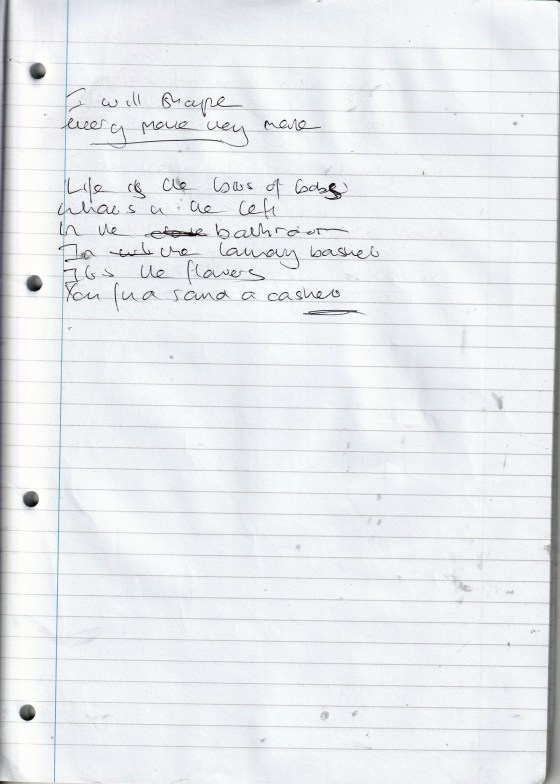 I will shape
every move they make
Life is the loss of
whats in the left
In the bathroom
In the laundry basket
Its the flowers
You find round a casket